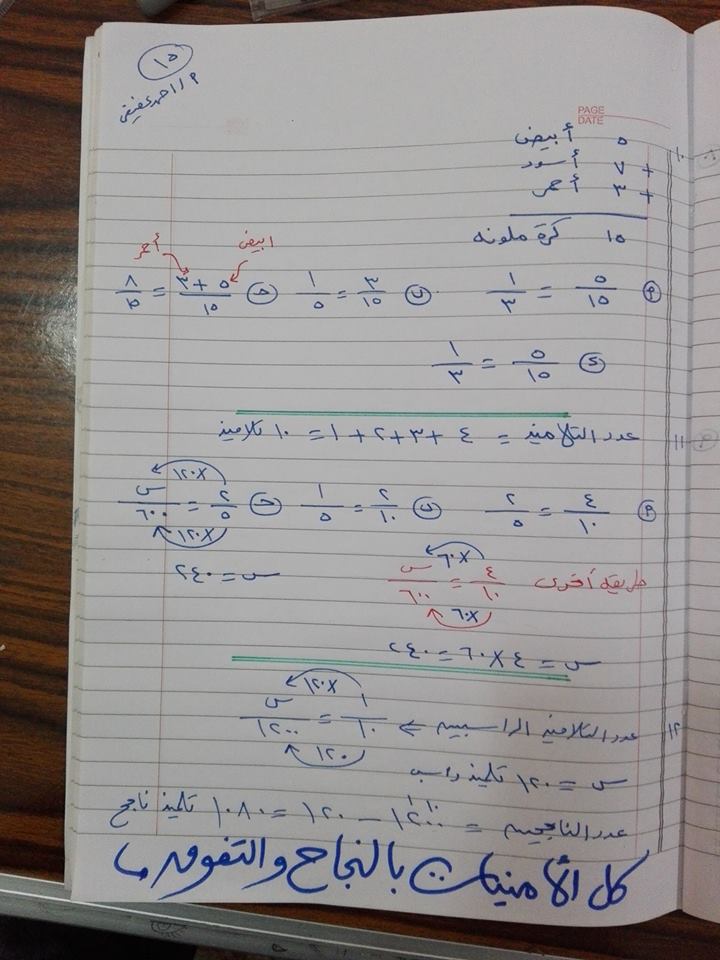 ١٥
م / احمد عفيفى
PAGE
DATE
١٠ ٥ أبيض
+ ٧ أسود
+ ٣ أحمر
١٥ كرة ملونه
ابيض أحمر
(أ) ٥/١٥ = ١/٣ (ب) ٣/١٥ = ١/٥ (حـ) (٥ + ٣)/١٥ = ٨/١٥
(د) ٥/١٥ = ١/٣
١١ عدد التلاميذ = ٤ + ٣ + ٢ + ١ = ١٠ تلاميذ
(أ) ٤/١٠ = ٢/٥ (ب) ٢/١٠ = ١/٥ (حـ) ٢/٥ = س/٦٠٠ ×١٢٠ ×١٢٠
س = ٢٤٠
طريقه أخرى ٤/١٠ = س/٦٠٠ ×٦٠ ×٦٠
س = ٤ × ٦٠ = ٢٤٠
١٢ عدد التلاميذ الراسبين ⇐ ١/١٠ = س/١٢٠٠ ×١٢٠ ١٢٠
س = ١٢٠ تلميذ راسب
عدد الناجحين = ١٢٠٠ − ١٢٠ = ١٠٨٠ تلميذ ناجح
كل الأمنيات بالنجاح والتفوق